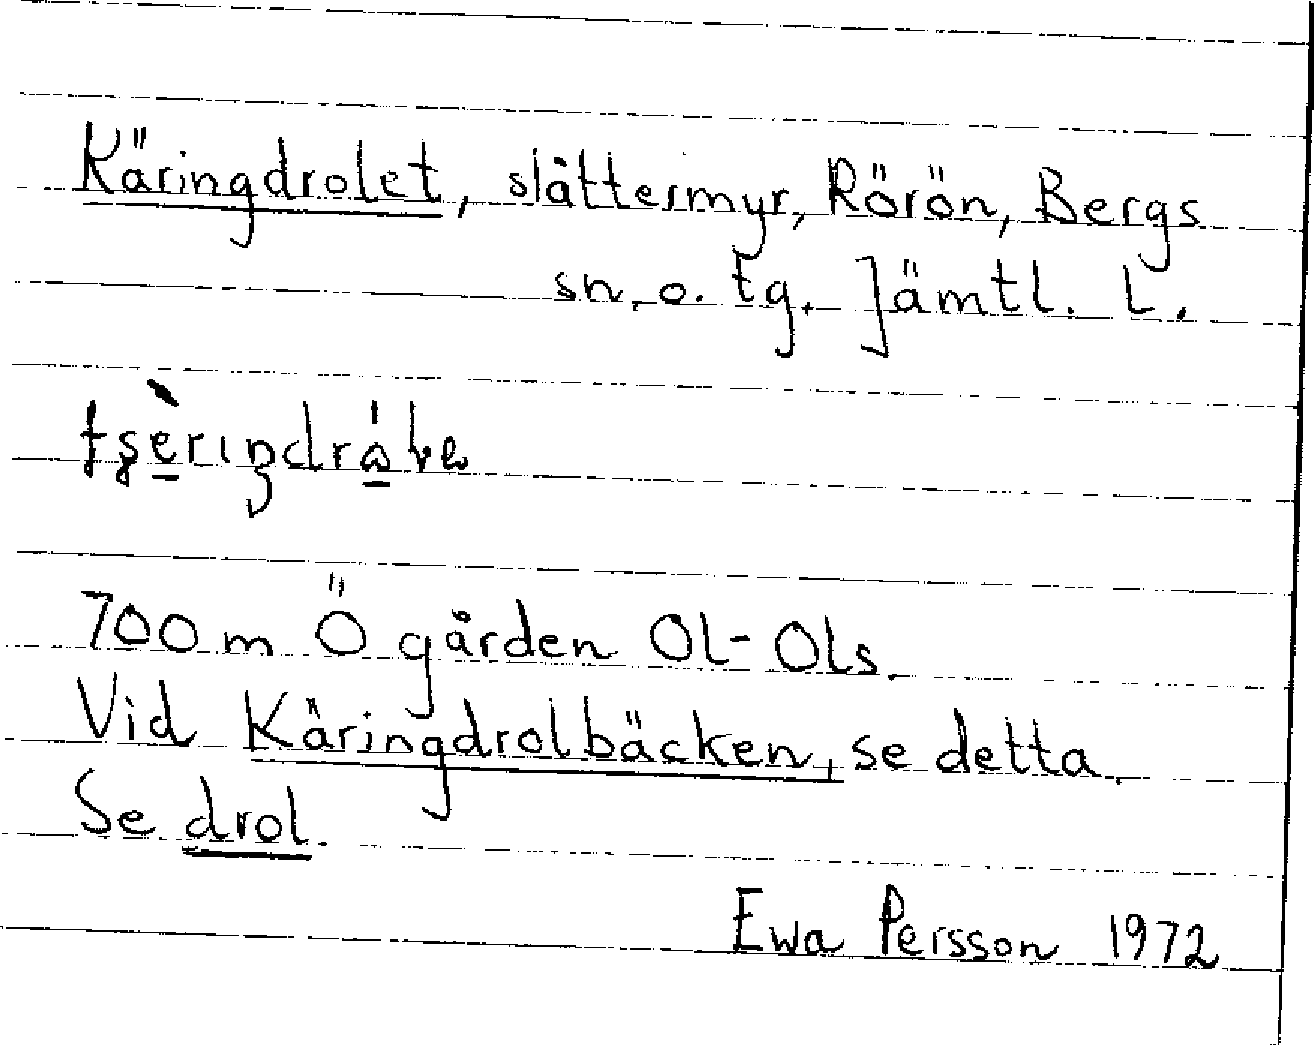 Käringdrolet, slåttermyr, Rörön, Bergs
sn. o. tg. Jämtl. L.
700 m Ö gården Ol-Ols.
Vid Käringdrolbäcken, se detta.
Se drol.
Ewa Persson 1972